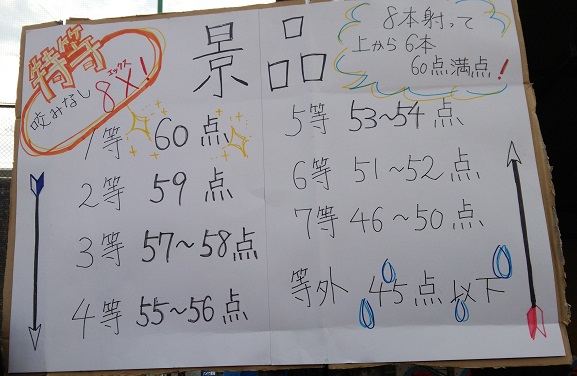 特等
咬みなし
エックス
8X!
景品
8本射って
上から6本
60点満点!
1等 60点
2等 59点
3等 57～58点
4等 55～56点
5等 53～54点
6等 51～52点
7等 46～50点
等外 45点以下